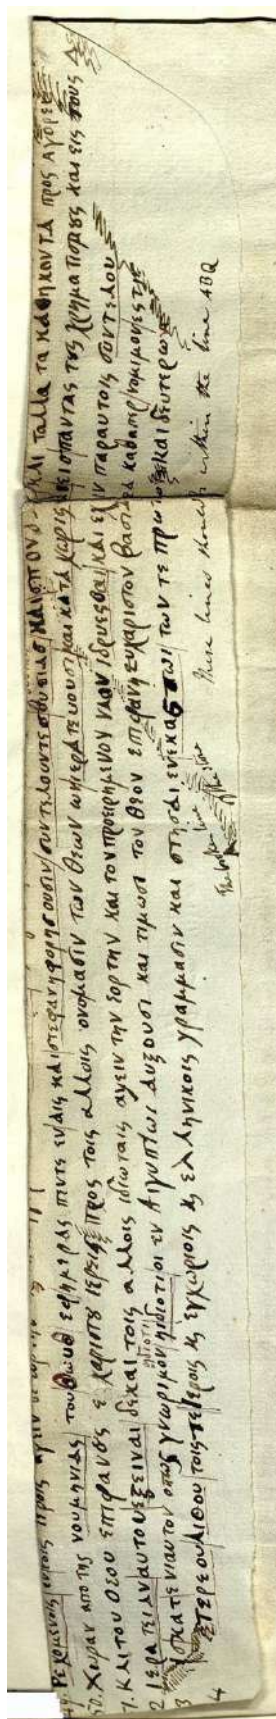 49. Ρεχομενοις εντοις προς αγειν
50. Χωραν απο της νουμηνιας του Θωυθ εφημερας πεντε εναις και στεφανηφορησουσιν συντελουντες θυσιας και σπονδ και ταλλα τα καθηκοντα προς αγορε
1. Κλι του θεου επιφανους ε χαριστου ιερεις προς τοις αλλοις ονομασιν των θεων ων ιερατευουσι και καταχωρις εις παντας τους χρηματισμους και εις τους Δε
2 ιερατειαν αυτου εξειναι δεκαι τοις αλλοις ιδιωταις αγειν την εορτην και τον προειρημενον ναον ιδρυεσθαι και εχ ιν παραυτοις συντελου
διοτι
3 υς κατ ενιαυτον οπως γνωριμον ηιδιοτι οι εν Αιγυπτωι αυξουσι και τιμωσι τον θεον επιφανη ευχαριστον βασιλεα καθαπερ νομιμον εστ
4 στερεου λιθου τοις τε ιεροις ϗ εγχωριοις ϗ ελληνικοις γραμμασιν και στησαι εν εκαστωι των τε πρωτω και δευτερω
These lines should within the line ABQ
The broken line of the stone